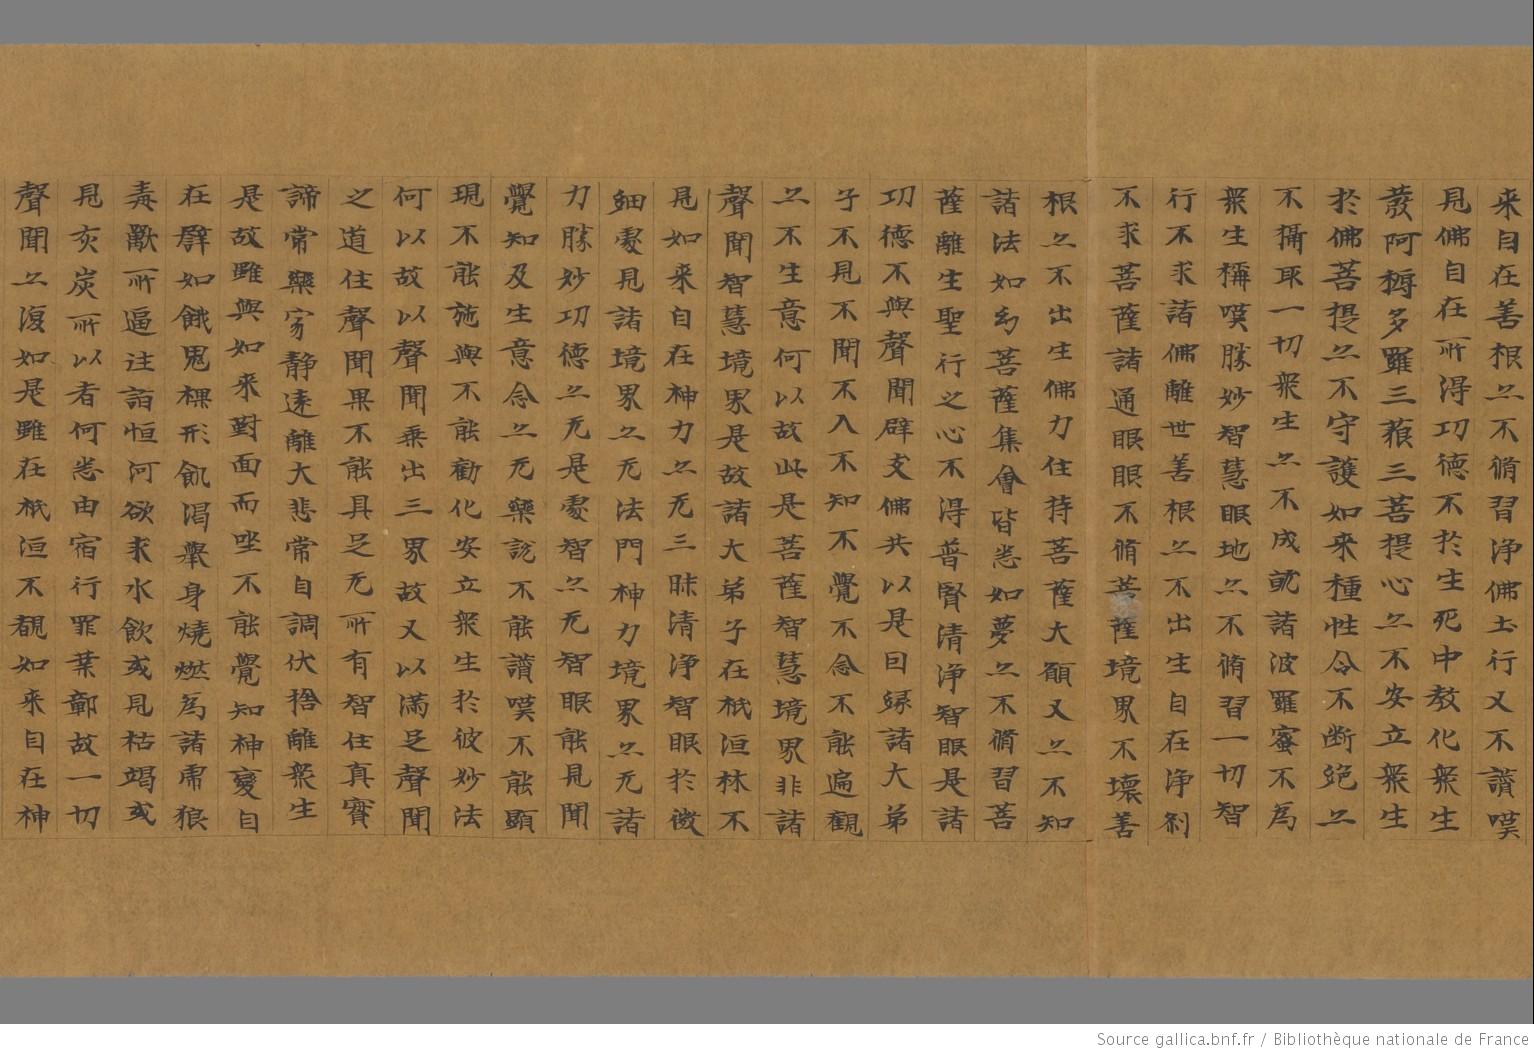 来自在善根亦不脩習淨佛土行又不讃嘆
見佛自在所得功德不於生死中教化衆生
發阿耨多羅三藐三菩提心亦不安立衆生
於佛菩提亦不守護如来種性令不斷絶亦
不攝取一切衆生亦不成就諸波羅蜜不為
衆生稱嘆勝妙智慧眼地亦不脩習一切智
行不求諸佛離世善根亦不出生自在淨刹
不求菩薩諸通眼眼不脩菩薩境界不壞善
根亦不出生佛力住持菩薩大願又亦不知
諸法如幻菩薩集會皆悉如夢亦不脩習菩
薩離生聖行之心不得普賢清淨智眼是諸
功德不與聲聞辟支佛共以是因緣諸大弟
子不見不聞不入不知不覺不念不能遍觀
亦不生意何以故此是菩薩智慧境界非諸
聲聞智慧境界是故諸大弟子在祇洹林不
見如来自在神力亦无三昧清淨智眼於微
細處見諸境界亦无法門神力境界亦无諸
力勝妙功德亦无是處智亦无智眼能見聞
覺知及生意念亦无樂說不能讃嘆不能顯
現不能施與不能勸化安立衆生於彼妙法
何以故以聲聞乘出三界故又以滿足聲聞
之道住聲聞果不能具足无所有智住真實
諦常樂寂静遠離大悲常自調伏捨離衆生
是故雖與如来對面而坐不能覺知神變自
在譬如餓鬼裸形飢渴舉身燒燃為諸虎狼
毒獸所逼往詣恒河欲求水飲或見枯竭或
見灰炭所以者何悉由宿行罪業鄣故一切
聲聞亦復如是雖在祇洹不覩如来自在神
Source gallica.bnf.fr / Bibliothèque nationale de France